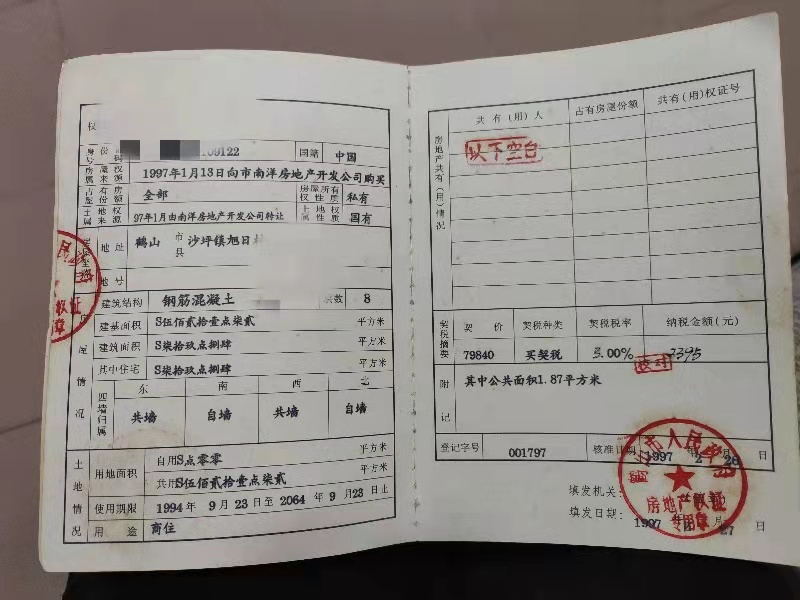 权
身份
号码 109122 国籍 中国
房屋
来源 1997年1月13日向市南洋房地产开发公司购买
占有房
屋份额 全部 房屋所有
权性质 私有
土地权
属来源 97年1月由南洋房地产开发公司转让 土地权
属性质 国有
地址 鹤山 市
县 沙坪镇旭日
地号
建筑结构 钢筋混凝土 层数 8
建基面积 S伍佰贰拾壹点柒贰 平方米
建筑面积 S柒拾玖点捌肆 平方米
其中住宅 S柒拾玖点捌肆 平方米
房屋情况
四墙归属 东 南 西 北
共墙 自墙 共墙 自墙
土地情况
用地面积 自用S点零零 平方米
共用S伍佰贰拾壹点柒贰 平方米
使用期限 1994年9月23日至2064年9月23日止
用途 商住
房地产共有(用)情况
共有(用)人 占有房屋份额 共有(用)权证号
以下空白
契税摘要
契价 契税种类 契税税率 纳税金额(元)
79840 买契税 3.00% 2395
校对
附记 其中公共面积1.87平方米
登记字号 001797 核准日期 1997年2月26日
填发机关:
填发日期: 1997年 月27日
市人民政府
房地产权证
专用章